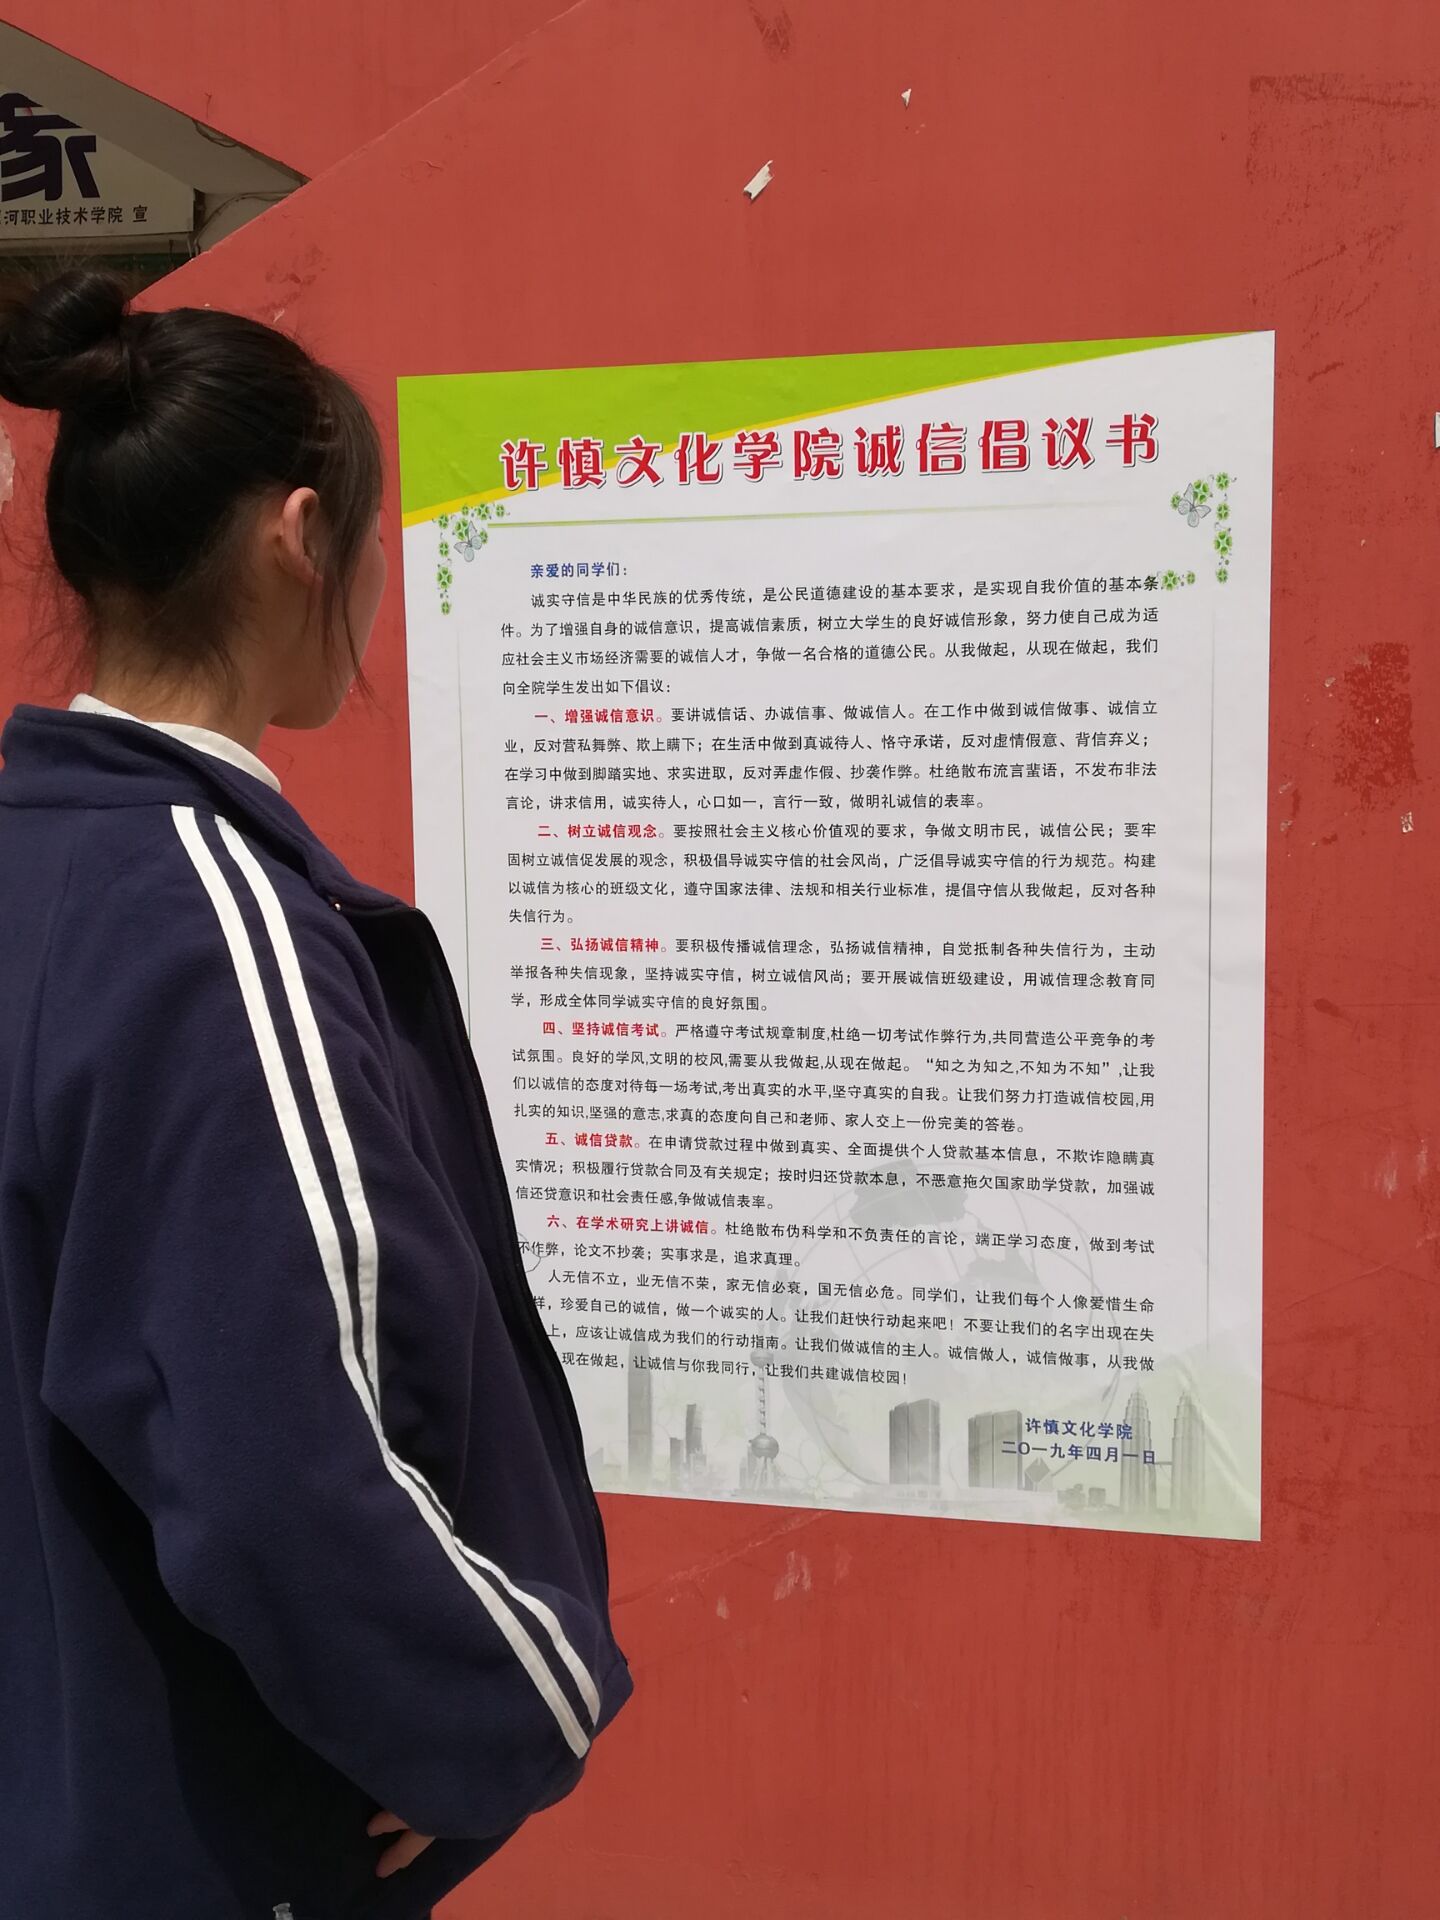 家
河职业技术学院 宣
许慎文化学院诚信倡议书
亲爱的同学们：
诚实守信是中华民族的优秀传统，是公民道德建设的基本要求，是实现自我价值的基本条
件。为了增强自身的诚信意识，提高诚信素质，树立大学生的良好诚信形象，努力使自己成为适
应社会主义市场经济需要的诚信人才，争做一名合格的道德公民。从我做起，从现在做起，我们
向全院学生发出如下倡议：
一、增强诚信意识。要讲诚信话、办诚信事、做诚信人。在工作中做到诚信做事、诚信立
业，反对营私舞弊、欺上瞒下；在生活中做到真诚待人、恪守承诺，反对虚情假意、背信弃义；
在学习中做到脚踏实地、求实进取，反对弄虚作假、抄袭作弊。杜绝散布流言蜚语，不发布非法
言论，讲求信用，诚实待人，心口如一，言行一致，做明礼诚信的表率。
二、树立诚信观念。要按照社会主义核心价值观的要求，争做文明市民，诚信公民；要牢
固树立诚信促发展的观念，积极倡导诚实守信的社会风尚，广泛倡导诚实守信的行为规范。构建
以诚信为核心的班级文化，遵守国家法律、法规和相关行业标准，提倡守信从我做起，反对各种
失信行为。
三、弘扬诚信精神。要积极传播诚信理念，弘扬诚信精神，自觉抵制各种失信行为，主动
举报各种失信现象，坚持诚实守信，树立诚信风尚；要开展诚信班级建设，用诚信理念教育同
学，形成全体同学诚实守信的良好氛围。
四、坚持诚信考试。严格遵守考试规章制度,杜绝一切考试作弊行为,共同营造公平竞争的考
试氛围。良好的学风,文明的校风,需要从我做起,从现在做起。“知之为知之,不知为不知”,让我
们以诚信的态度对待每一场考试,考出真实的水平,坚守真实的自我。让我们努力打造诚信校园,用
扎实的知识,坚强的意志,求真的态度向自己和老师、家人交上一份完美的答卷。
五、诚信贷款。在申请贷款过程中做到真实、全面提供个人贷款基本信息，不欺诈隐瞒真
实情况；积极履行贷款合同及有关规定；按时归还贷款本息，不恶意拖欠国家助学贷款，加强诚
信还贷意识和社会责任感,争做诚信表率。
六、在学术研究上讲诚信。杜绝散布伪科学和不负责任的言论，端正学习态度，做到考试
不作弊，论文不抄袭；实事求是，追求真理。
人无信不立，业无信不荣，家无信必衰，国无信必危。同学们，让我们每个人像爱惜生命
样，珍爱自己的诚信，做一个诚实的人。让我们赶快行动起来吧！不要让我们的名字出现在失
上，应该让诚信成为我们的行动指南。让我们做诚信的主人。诚信做人，诚信做事，从我做
现在做起，让诚信与你我同行，让我们共建诚信校园！
许慎文化学院
二〇一九年四月一日